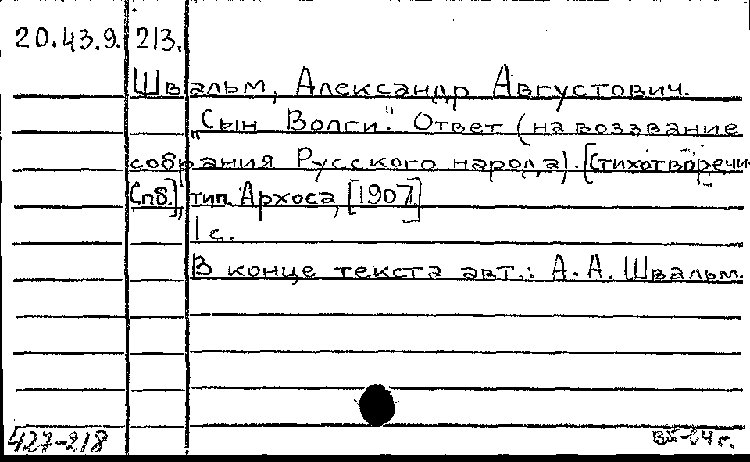 20.43.9. 213.
Швальм, Александр Августович.
„Сын Волги". Ответ (на воззвание
собрания Русского народа). [Стихотворение]
[Спб.], тип. Архоса, [1907]
1 с.
В конце текста авт.: А. А. Швальм.
427-218